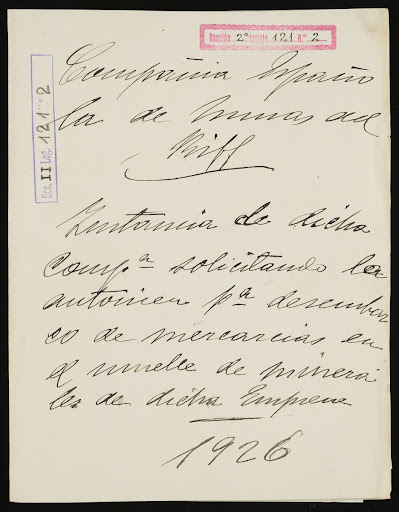 Sección 2ª Legajo 121 N.º 2
Scn. II Leg. 121 N.º 2
Compañia Españo
la de Minas del
Riff
Instancia de dicha
Comp.ª solicitando les
autoricen p.ª desembar
co de mercancias en
el muelle de minera
les de dicha Empresa
1926